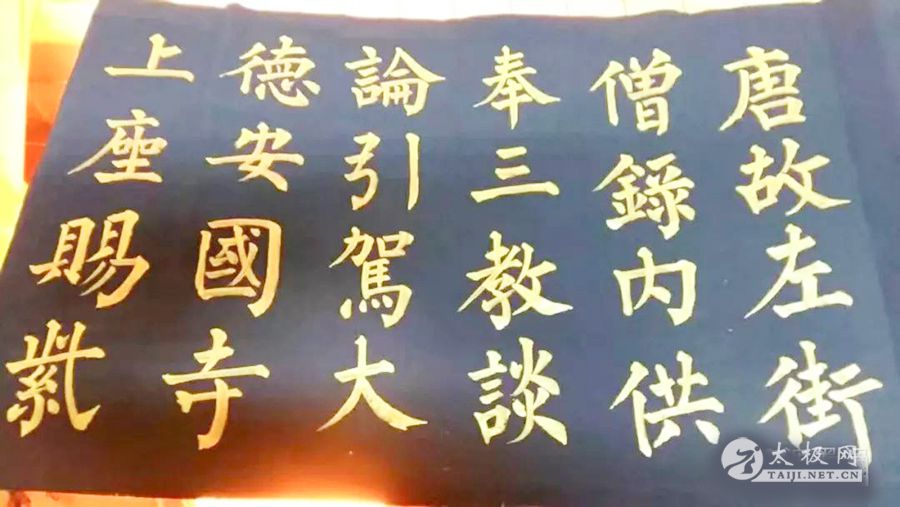 唐故左街
僧錄內供
奉三教談
論引駕大
德安國寺
上座賜紫
太极网
TAIJI.NET.CN